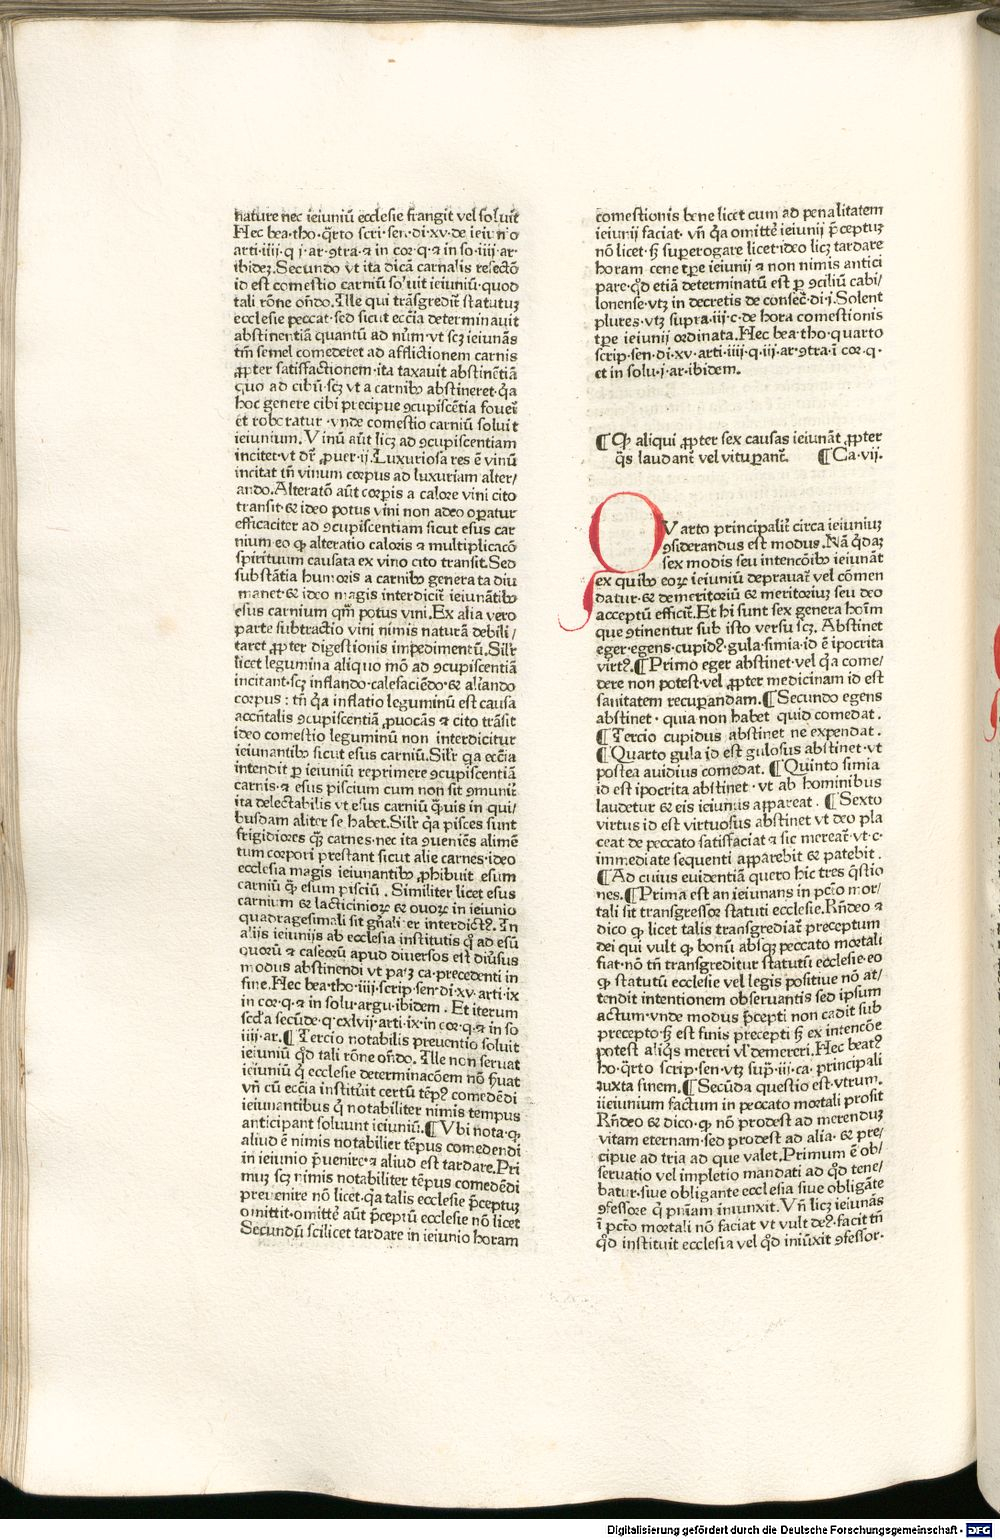 nature nec ieiuniū ecclesie frangit vel soluit
Hec bea·tho·q̄rto scri·sen·di·xv·de ieiunio
arti·iiii·q j·ar·ꝯtra·⁊ in cor·q·⁊ in so·iiii·ar·
ibidez.Secundo vt ita dicā carnalis refectō
id est comestio carniū soluit ieiuniū·quod
tali rōne oñdo.Ille qui trāsgredit᷑ statutuꝫ
ecclesie peccat·sed sicut eccīa determinauit
abstinentiā quantū ad nūm̄ vt scꝫ ieiunās
tm̄ semel comederet ad afflictionem carnis
ꝓpter satisfactionem·ita taxauit abstinētiā
quo ad cibū·scꝫ vt a carnibꝰ abstineret·q̄a
hoc genere cibi precipue ꝯcupiscētia fouet᷑
et roboratur·vnde comestio carniū soluit
ieiunium.Vinū aūt licꝫ ad ꝯcupiscentiam
incitet·vt dr̄ ꝓuer·ij.Luxuriosa res ē vinū
incitat tn̄ vinum corpus ad luxuriam alter/
ando.Alteratō aūt corpis a calore vini cito
transit·& ideo potus vini non adeo oꝑatur
efficaciter ad ꝯcupiscentiam sicut esus car
nium eo ꝙ alteratio caloris ⁊ multiplicacō
spirituum causata ex vino cito transit.Sed
substātia humoris a carnibꝰ generata diu
manet·& ideo magis interdicit᷑ ieiunātibꝰ
esus carnium qm̄ potus vini.Ex alia vero
parte subtractio vini nimis naturā debili/
taret ꝓpter digestionis impedimentū.Silr̄
licet legumina aliquo mō ad ꝯcupiscentiā
incitant·scꝫ inflando·calefaciēdo·& aliando
corpus : tn̄ q̄a inflatio leguminū est causa
accn̄talis ꝯcupiscentiā ꝓuocās ⁊ cito trāsit
ideo comestio leguminū non interdicitur
ieiunantibꝰ sicut esus carniū.Silr̄ q̄a eccīa
intendit ꝑ ieiuniū reprimere ꝯcupiscentiā
carnis·⁊ esus piscium cum non sit ꝯmunit᷑
ita delectabilis vt esus carniū q̄uis in qui/
busdam aliter se habet.Silr̄ q̄a pisces sunt
frigidiores q̄ꝫ carnes·nec ita ꝯueniēs alimē
tum corpori prestant sicut alie carnes·ideo
ecclesia magis ieiunantibꝰ ꝓhibuit esum
carniū q̄ꝫ esum pisciū . Similiter licet esus
carnium & lacticinioꝝ & ouoꝝ in ieiunio
quadragesimali sit gn̄aliter interdictꝰ.In
alijs ieiunijs ab ecclesia institutis qͦ ad esū
quorū ⁊ caseorū apud diuersos est diūsus
modus abstinendi vt pꝫ ca·precedenti in
fine.Hec bea·tho·iiij·scrip·sen·di·xv·arti·ix
in cor·q·⁊ in solu·argu·ibidem . Et iterum
scd̄a secūde·q·cxlvij·arti·ix·in cor·q·⁊ in so
iiij·ar.¶ Tercio notabilis preuentio soluit
ieiuniū q̄d tali rōne oñdo. Ille non seruat
ieiuniū q̄ ecclesie determinacōem nō ẜuat
vn̄ cū eccīa instituit certū tēpꝰ comedēdi
ieiunantibus q̄ notabiliter nimis tempus
anticipant soluunt ieiuniū.¶ Vbi nota·ꝙ
aliud ē nimis notabilier tēpus comedendi
in ieiunio p̄uenire·⁊ aliud est tardare.Pri
muꝫ scꝫ nimis notabiliter tēpus comedēdi
preuenire nō licet·q̄a talis ecclesie p̄ceptuꝫ
omittit·omitte᷑ aūt p̄ceptū ecclesie nō licet
Secundū scilicet tardare in ieiunio horam
comestionis bene licet cum ad penalitatem
ieiunij faciat· vn̄ q̄a omitte᷑ ieiunij p̄ceptuꝫ
nō licet·ꝫ̄ superogare licet·ideo licꝫ tardare
horam cene tꝑe ieiunij ⁊ non nimis antici
pare·q̄d etiā determinatū est ꝑ ꝯciliū cabi/
lonense·vtꝫ in decretis de consec̄·di·j.Solent
plures·vtꝫ supra·iij·c·de hora comestionis
tꝑe ieiunij ordinata.Hec bea·tho·quarto
scrip·sen·di·xv·arti·iiij·q·iij·ar·ꝯtra·ī cor·q·
et in solu·j·ar·ibidem.
¶ Ꝙ aliqui ꝓpter sex causas ieiunāt ꝓpter
q̄s laudant᷑ vel vituꝑant᷑. ¶ Ca·vij.
QVarto principalit᷑ circa ieiuniuꝫ
ꝯsiderandus est modus.Nā q̄daꝫ
sex modis seu intencōibꝰ ieiunāt
ex quibꝰ eoꝝ ieiuniū deprauat᷑ vel cōmen
datur·& demeritoriū & meritoriuꝫ seu deo
acceptū efficit᷑.Et hi sunt sex genera hoīm
que ꝯtinentur sub isto versu scꝫ. Abstinet
eger·egens·cupidꝰ·gula·simia·id ē ipocrita
virtꝰ.¶ Primo eger abstinet·vel q̄a come/
dere non potest·vel ꝓpter medicinam id est
sanitatem recuꝑandam.¶ Secundo egens
abstinet · quia non habet quid comedat .
¶ Tercio cupidus abstinet ne expendat.
¶ Quarto gula id est gulosus abstinet·vt
postea auidius comedat. ¶ Quinto simia
id est ipocrita abstinet · vt ab hominibus
laudetur & eis ieiunus appareat . ¶ Sexto
virtus id est virtuosus abstinet vt deo pla
ceat de peccato satisfaciat ⁊ sic mereat᷑·vt·c·
immediate sequenti apparebit & patebit .
¶ Ad cuius euidentiā quero hic tres q̄stio
nes.¶ Prima est an ieiunans in pctō mor/
tali sit transgressor statuti ecclesie.Rn̄deo ⁊
dico ꝙ licet talis transgrediat᷑ preceptum
dei qui vult ꝙ bonū absqꝫ peccato mortali
fiat·nō tn̄ transgreditur statutū ecclesie·eo
ꝙ statutū ecclesie vel legis positiue nō at/
tendit intentionem obseruantis sed ipsum
actum·vnde modus p̄cepti non cadit sub
precepto·ꝫ̄ est finis precepti ꝫ̄ ex intencōe
potest aliq̄s mereri vl̓ demereri.Hec beatꝰ
ho·q̄rto scrip·sen·vtꝫ sup̄·iij·ca·principali
iuxta finem.¶ Secūda questio est·vtrum.
iieiunium factum in peccato mortali prosit
Rn̄deo & dico·ꝙ nō prodest ad merenduꝫ
vitam eternam·sed prodest ad alia· & pre/
cipue ad tria ad que valet.Primum ē ob/
seruatio vel impletio mandati ad q̄d tene/
batur·siue obligante ecclesia siue obligāte
ꝯfessore q̄ pn̄iam iniunxit.Vn̄ licꝫ ieiunās
ī pctō mortali nō faciat vt vult deꝰ·facit tn̄
q̄d instituit ecclesia vel q̄d iniūxit ꝯfessor·
Digitalisierung gefördert durch die Deutsche Forschungsgemeinschaft - DFG